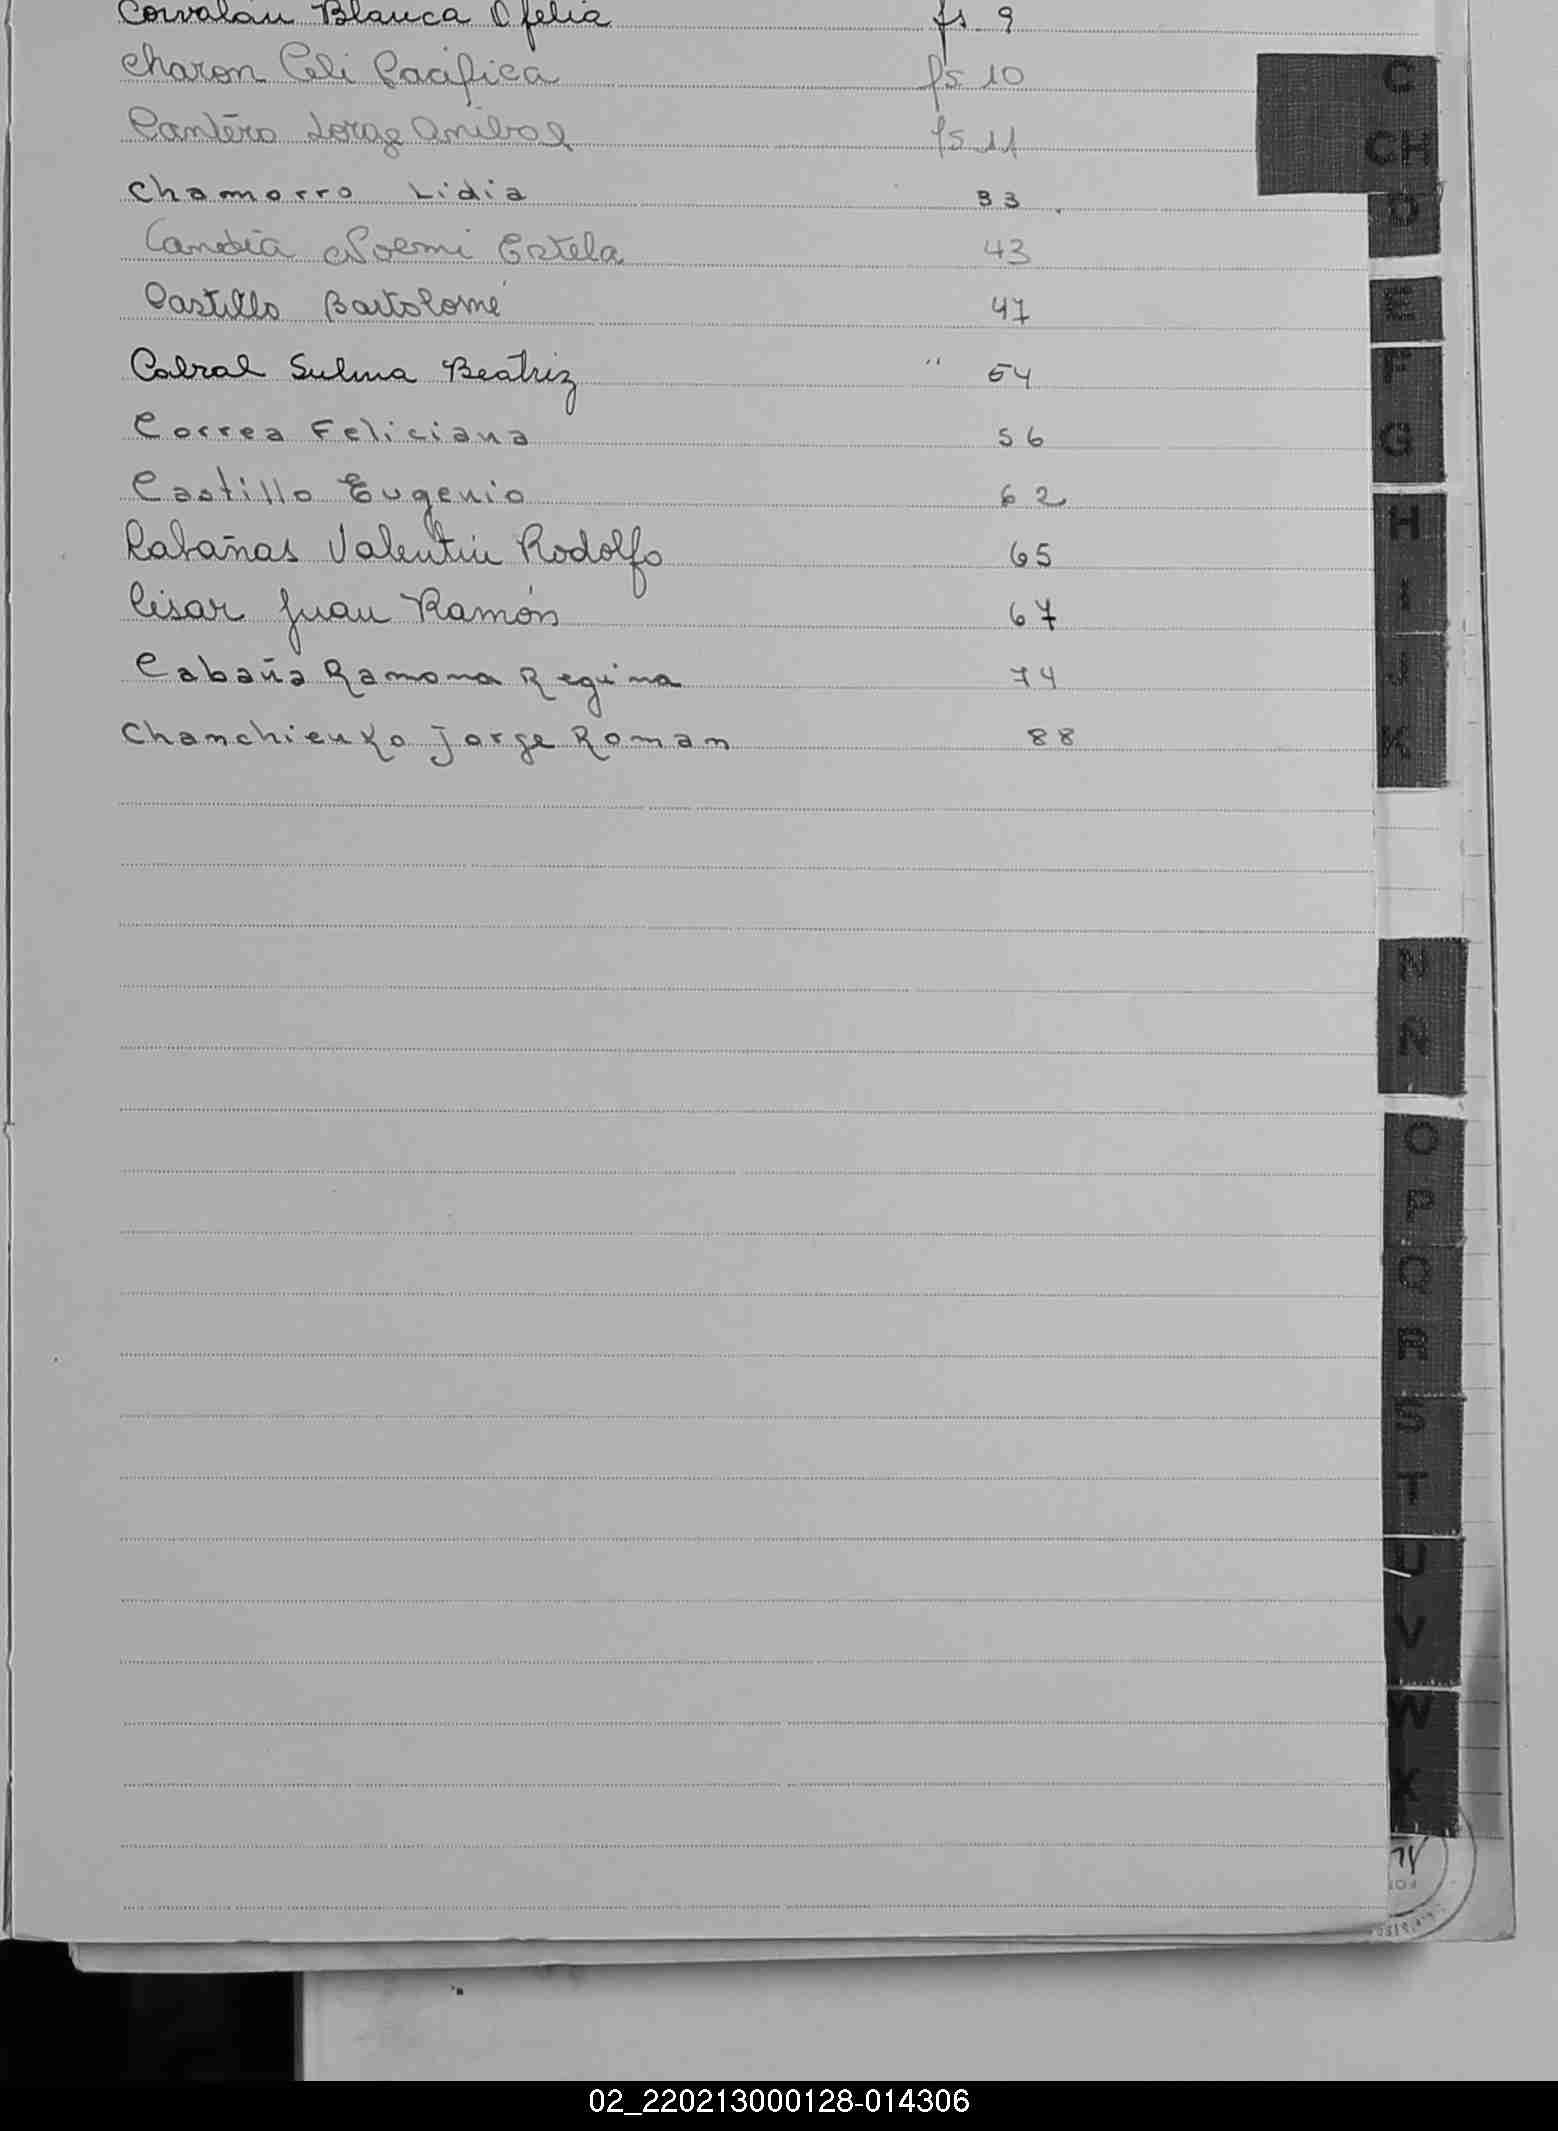 Corvalan Blanca Ofelia fs 9
Charon Celi Pacifica fs 10
Cantero Jorge Anibal fs 11
Chamorro Lidia 33
Candia Noemi Estela 43
Castillo Bartolomé 47
Cabral Sulma Beatriz " 54
Correa Feliciana 56
Castillo Eugenio 62
Cabañas Valentin Rodolfo 65
Cisar Juan Ramón 67
Cabaña Ramona Regina 74
Chanchienko Jorge Roman 88
C
CH
D
E
F
G
H
I
J
K
N
Ñ
O
P
Q
R
S
T
U
V
W
X
02_220213000128-014306